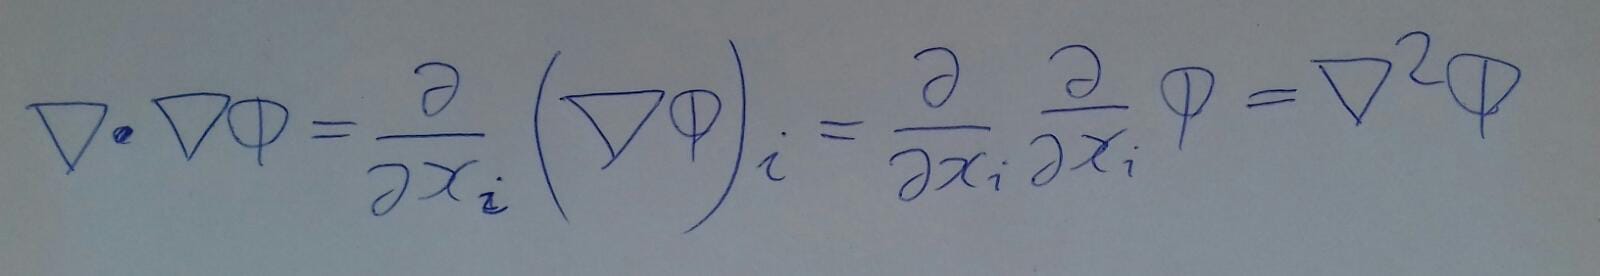 ∇·∇Φ = ∂/∂xᵢ (∇Φ)ᵢ = ∂/∂xᵢ ∂/∂xᵢ Φ = ∇²Φ